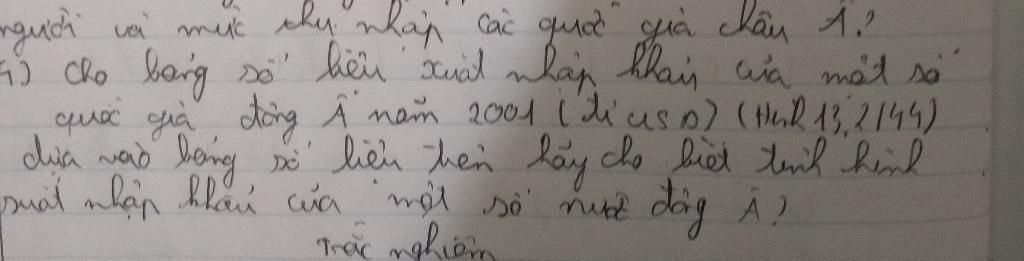 người và mức thu nhập các quốc gia châu Á?
4) Cho bảng số liệu xuất nhập khẩu của một số
quốc gia đông Á năm 2001 (tỉ USD) (H.13.2/44)
dựa vào bảng số liệu trên hãy cho biết tình hình
xuất nhập khẩu của một số nước đông Á?
Trắc nghiệm